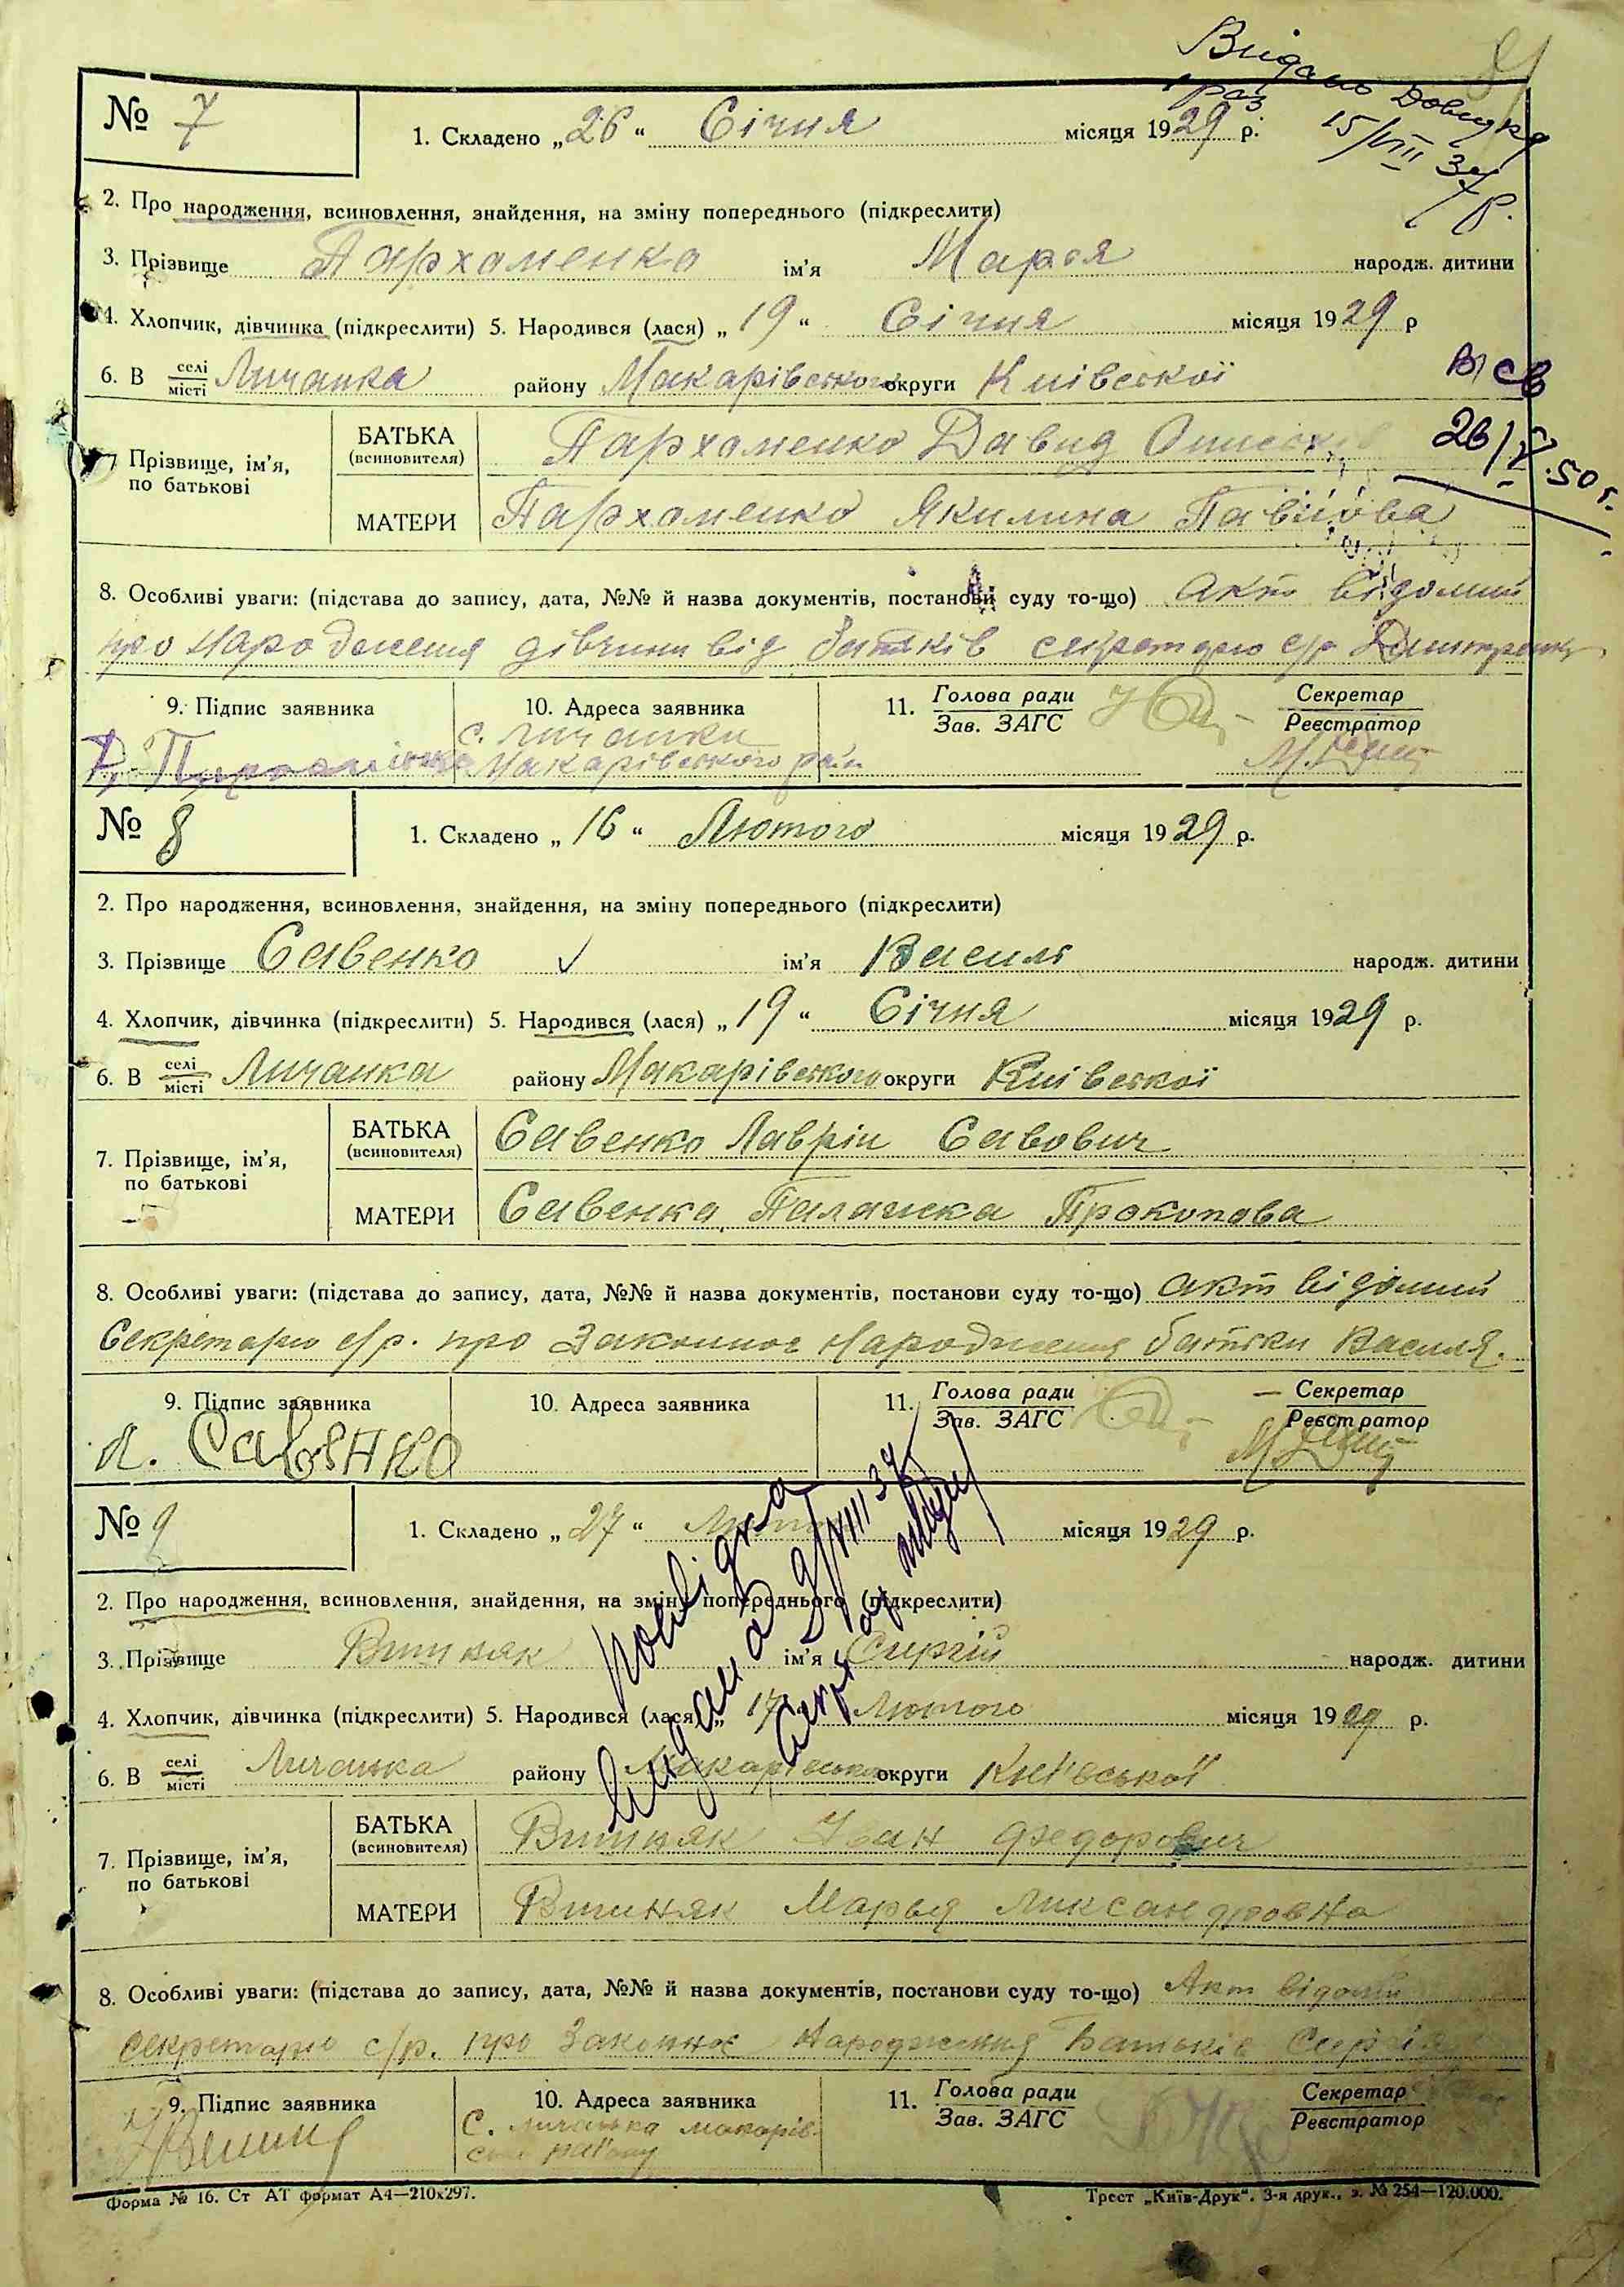 Видано Довідка
раз
15/VIII 37 р.
№ 7
1. Складено „26“ Січня місяця 1929 р.
2. Про народження, всиновлення, знайдення, на зміну попереднього (підкреслити)
3. Прізвище Пархоменко ім'я Марія народж. дитини
4. Хлопчик, дівчинка (підкреслити) 5. Народився (лася) „19“ Січня місяця 1929 р
6. В селі/місті Личанка району Макарівского округи Киівскої
В/ св
26/V.50 г.
7 Прізвище, ім'я, по батькові
БАТЬКА (всиновителя) Пархоменко Давид
МАТЕРИ Пархоменко Якилина
8. Особливі уваги: (підстава до запису, дата, №№ й назва документів, постанови суду то-що) акт відомий
про народження дівчини від батьків секретарю с/р
9. Підпис заявника
10. Адреса заявника с. Личанки
Макарівского рай
11. Голова ради/Зав. ЗАГС
Секретар/Реєстратор
№ 8
1. Складено „16“ Лютого місяця 1929 р.
2. Про народження, всиновлення, знайдення, на зміну попереднього (підкреслити)
3. Прізвище Савенко ім'я Василь народж. дитини
4. Хлопчик, дівчинка (підкреслити) 5. Народився (лася) „19“ Січня місяця 1929 р.
6. В селі/місті Личанка району Макарівского округи Киівскої
7. Прізвище, ім'я, по батькові
БАТЬКА (всиновителя) Савенко Лаврін Савович
МАТЕРИ Савенка Палажка Прокопова
8. Особливі уваги: (підстава до запису, дата, №№ й назва документів, постанови суду то-що) акт відомий
Секретарю с/р. про законное народження батьки Василя.
9. Підпис заявника
Л. Савенко
10. Адреса заявника
11. Голова ради/Зав. ЗАГС
Секретар/Реєстратор
№ 9
1. Складено „27“ Лютого місяця 1929 р.
2. Про народження, всиновлення, знайдення, на зміну попереднього (підкреслити)
3. Прізвище Вишняк ім'я Сиргій народж. дитини
4. Хлопчик, дівчинка (підкреслити) 5. Народився (лася) „17“ Лютого місяця 1929 р.
6. В селі/місті Личанка району округи Київської
7. Прізвище, ім'я, по батькові
БАТЬКА (всиновителя) Вишняк Іван Федорович
МАТЕРИ Вишняк Марья Ликсандровна
8. Особливі уваги: (підстава до запису, дата, №№ й назва документів, постанови суду то-що) Акт відомий
секретарю с/р. про законное народження батьків Сиргія
довідка
видана 9/VIII 37
9. Підпис заявника
10. Адреса заявника
С. Личанка макарів
ськ району
11. Голова ради/Зав. ЗАГС
Секретар/Реєстратор
Форма № 16. Ст АТ формат А4—210х297.
Трест „Київ-Друк“. 3-я друк., з. № 254—120.000.